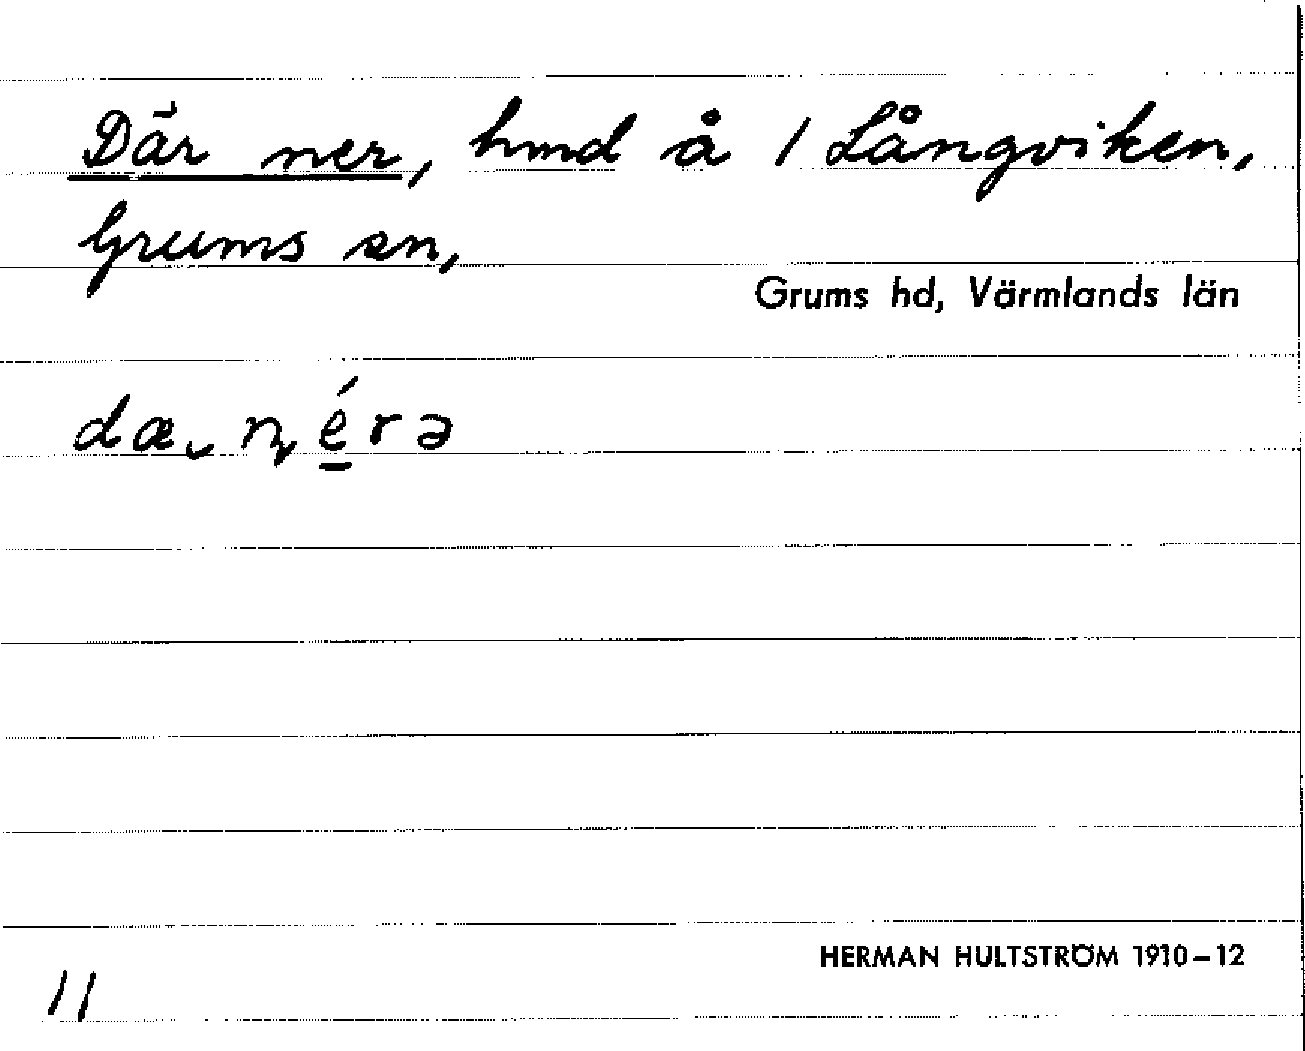 Där ner, hmd å 1 Långviken,
Grums sn,
Grums hd, Värmlands län
dæ ̮ ɳé̠rə
HERMAN HULTSTRÖM 1910–12
11